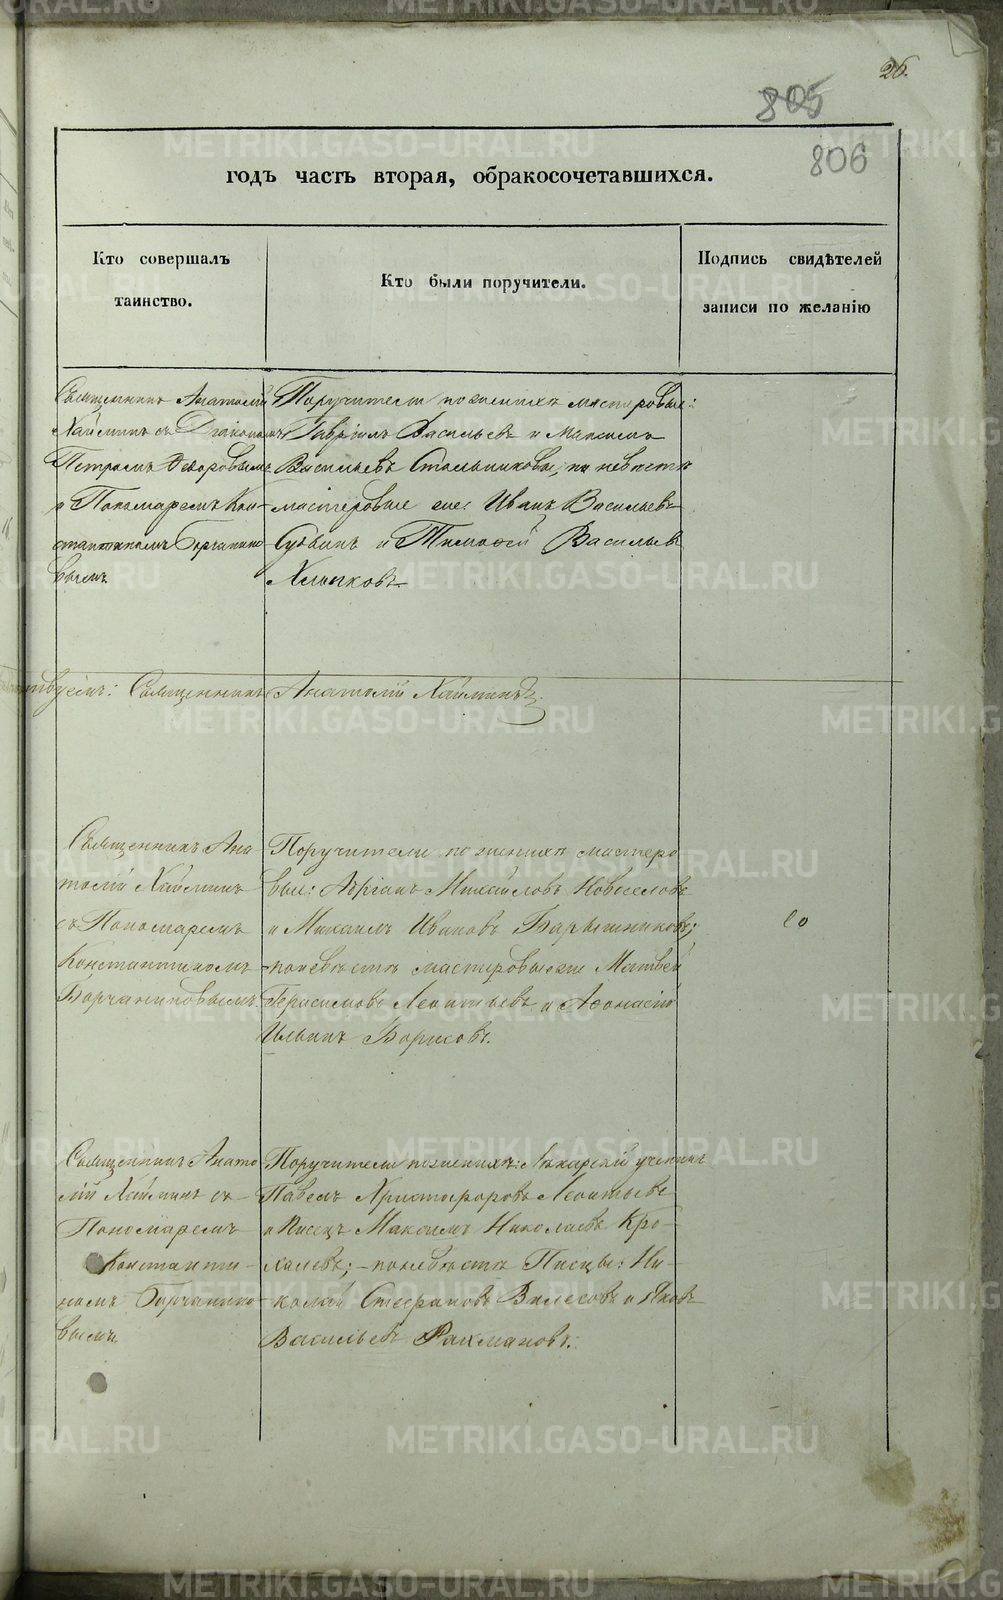 26.
805
806
годъ часть вторая, обракосочетавшихся.
Кто совершалъ
таинство.
Кто были поручители.
Подпись свидѣтелей
записи по желанію
Священникъ Анатолій
Хайминъ съ Діакономъ
Петромъ Ѳедоровымъ
и Пономаремъ Кон-
стантиномъ Борчанино
вымъ.
Поручители по женихѣ мастеровые:
Гавріилъ Васильевъ и Максимъ
Васильевъ Стольниковы, по невѣстѣ
мастеровые же: Иванъ Васильевъ
и Тимоѳей Васильевъ
Хлопковъ.
Священникъ Анатолій Хайминъ.
Священникъ Ана
толій Хайминъ
съ Пономаремъ
Константиномъ
Борчаниновымъ.
Поручители по женихѣ мастеро
вые: Адріанъ Михайловъ Новоселовъ
и Михаилъ Ивановъ Барышниковъ;
по невѣстѣ мастеровые же Матвей
Герасимовъ Леонтьевъ и Аѳонасій
Ильинъ Борисовъ.
Священникъ Анато
лій Хайминъ съ
Пономаремъ
Константи-
номъ Борчанино
вымъ.
Поручители по женихѣ: Лѣкарскій ученикъ
Павелъ Христофоровъ Леонтьевъ
и Писецъ Максимъ Николаевъ Кро-
халевъ; - по невѣстѣ Писцы: Ни-
колай Стефановъ Вилесовъ и Яковъ
Васильевъ Рахмановъ.
METRIKI.GASO-URAL.RU